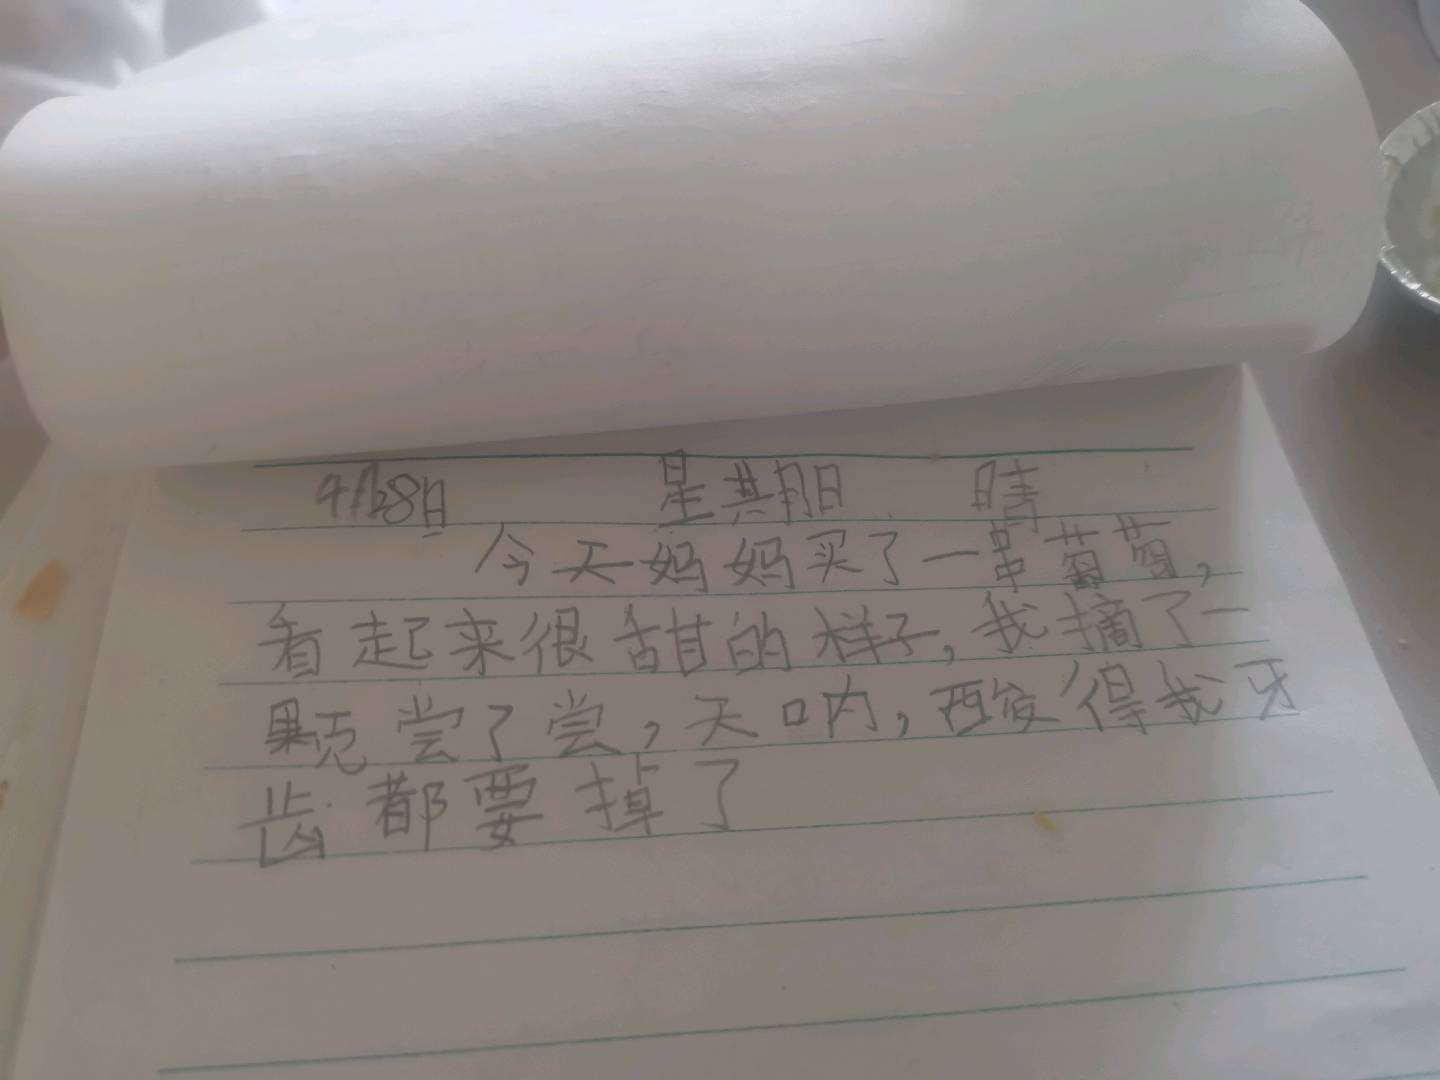 4月28日 星期日 晴
今天妈妈买了一串葡萄,
看起来很甜的样子,我摘了一
颗尝了尝,天呐,酸得我牙
齿都要掉了